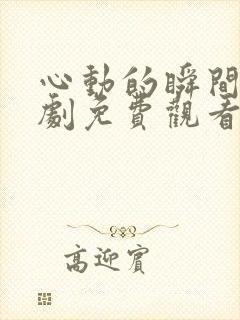 心動的瞬間
劇免費觀看
高迎賓